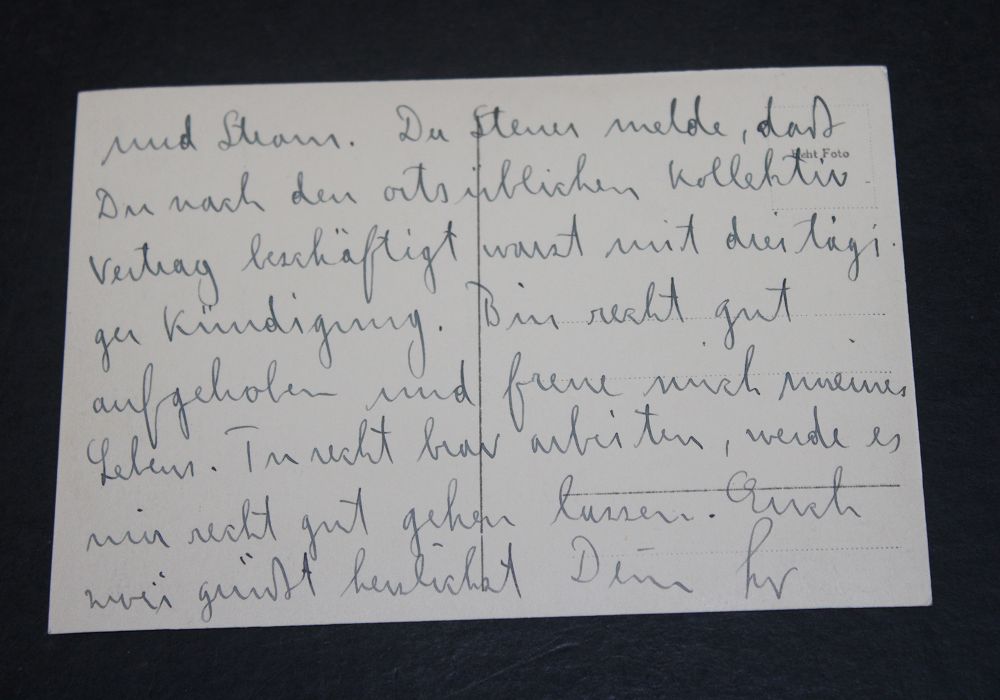 und Strom. Du Steuer melde, daß
Echt Foto
Du nach den ortsüblichen Kollektiv
Vertrag beschäftigt warst mit dreitägi-
ger Kündigung. Bin recht gut
aufgehoben und freue mich meines
Lebens. Tu recht brav arbeiten, werde es
mir recht gut gehen lassen. Euch
zwei grüßt herzlichst Dein